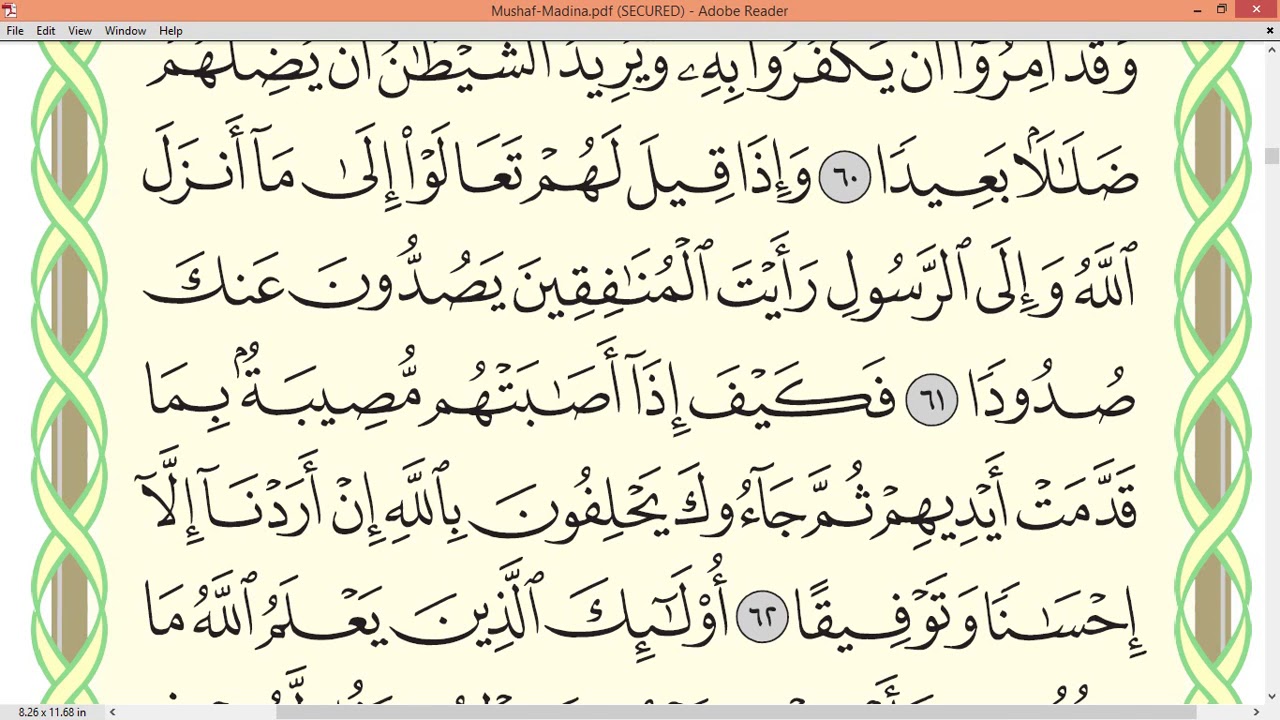 Mushaf-Madina.pdf (SECURED) - Adobe Reader
File Edit View Window Help
وَقَدْ أُمِرُوٓا۟ أَن يَكْفُرُوا۟ بِهِۦ وَيُرِيدُ ٱلشَّيْطَٰنُ أَن يُضِلَّهُمْ
ضَلَٰلًۢا بَعِيدًا ٦٠ وَإِذَا قِيلَ لَهُمْ تَعَالَوْا۟ إِلَىٰ مَآ أَنزَلَ
ٱللَّهُ وَإِلَى ٱلرَّسُولِ رَأَيْتَ ٱلْمُنَٰفِقِينَ يَصُدُّونَ عَنكَ
صُدُودًا ٦١ فَكَيْفَ إِذَآ أَصَٰبَتْهُم مُّصِيبَةٌۢ بِمَا
قَدَّمَتْ أَيْدِيهِمْ ثُمَّ جَآءُوكَ يَحْلِفُونَ بِٱللَّهِ إِنْ أَرَدْنَآ إِلَّآ
إِحْسَٰنًا وَتَوْفِيقًا ٦٢ أُو۟لَٰٓئِكَ ٱلَّذِينَ يَعْلَمُ ٱللَّهُ مَا
8.26 x 11.68 in